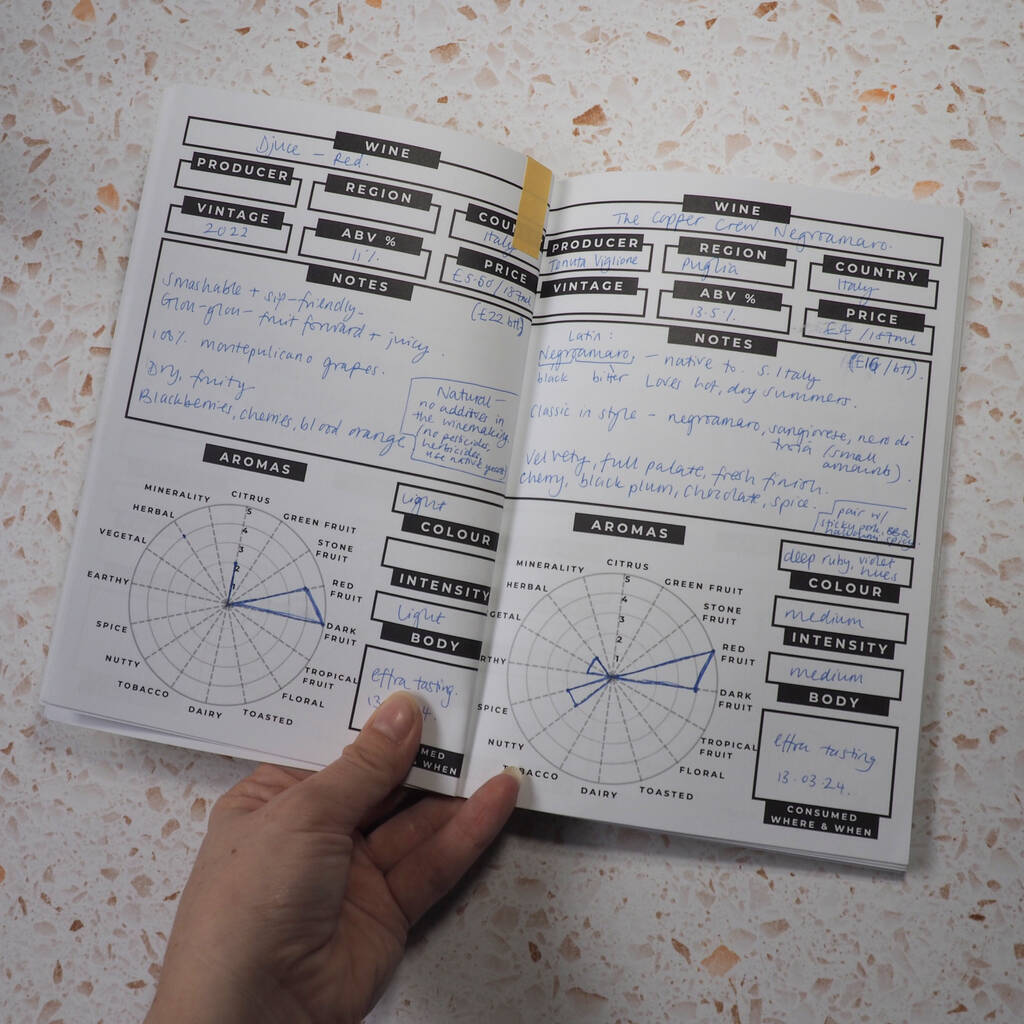 WINE
Djuce - Red.
PRODUCER
REGION
COUN
Italy
VINTAGE
2022
ABV %
11%
PRICE
£5.50/187ml
(£22 btl)
NOTES
Smashable + sip-friendly
Glou-glou - fruit forward + juicy.
100% montepulicano grapes.
Dry, fruity
Blackberries, cherries, blood orange
Natural -
no additives in
the winemaking,
(no pesticides,
herbicides,
use native yeasts)
AROMAS
CITRUS
GREEN FRUIT
STONE
FRUIT
RED
FRUIT
DARK
FRUIT
TROPICAL
FRUIT
FLORAL
TOASTED
DAIRY
TOBACCO
NUTTY
SPICE
EARTHY
VEGETAL
HERBAL
MINERALITY
5
4
3
2
1
light
COLOUR
INTENSITY
light
BODY
effra tasting.
13 4.
UMED
& WHEN
WINE
The Copper Crew Negroamaro.
PRODUCER
Tenuta Viglione
REGION
Puglia
COUNTRY
Italy
VINTAGE
ABV %
13.5%
PRICE
£4 /187ml
(£16/btl).
NOTES
Latin:
Negroamaro, - native to S. Italy
black bitter Loves hot, dry summers.
Classic in style - negroamaro, sangiovese, nero di
troia (small
amounts).
Velvety, full palate, fresh finish.
Cherry, black plum, chocolate, spice.
pair w/
sticky pork, BBQ,
halloumi, spicy
AROMAS
CITRUS
GREEN FRUIT
STONE
FRUIT
RED
FRUIT
DARK
FRUIT
TROPICAL
FRUIT
FLORAL
TOASTED
DAIRY
TOBACCO
NUTTY
SPICE
RTHY
GETAL
HERBAL
MINERALITY
5
4
3
2
1
deep ruby, violet
hues
COLOUR
medium
INTENSITY
medium
BODY
effra tasting
13.03.24.
CONSUMED
WHERE & WHEN